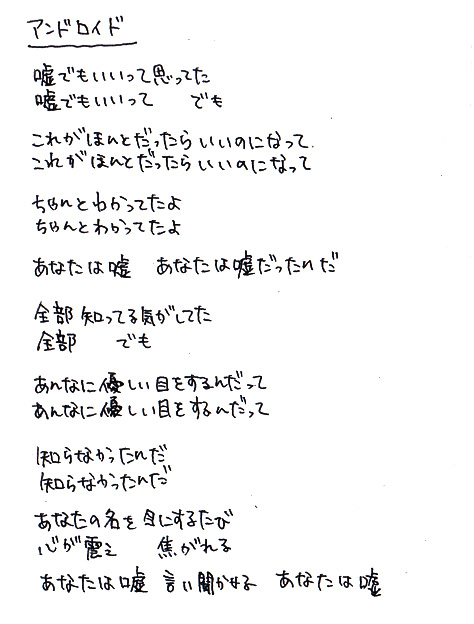 アンドロイド
嘘でもいいって思ってた
嘘でもいいって　でも
これがほんとだったらいいのになって
これがほんとだったらいいのになって
ちゃんとわかってたよ
ちゃんとわかってたよ
あなたは嘘　あなたは嘘だったんだ
全部知ってる気がしてた
全部　でも
あんなに優しい目をするんだって
あんなに優しい目をするんだって
知らなかったんだ
知らなかったんだ
あなたの名を目にするたび
心が震え　焦がれる
あなたは嘘　言い聞かせる　あなたは嘘